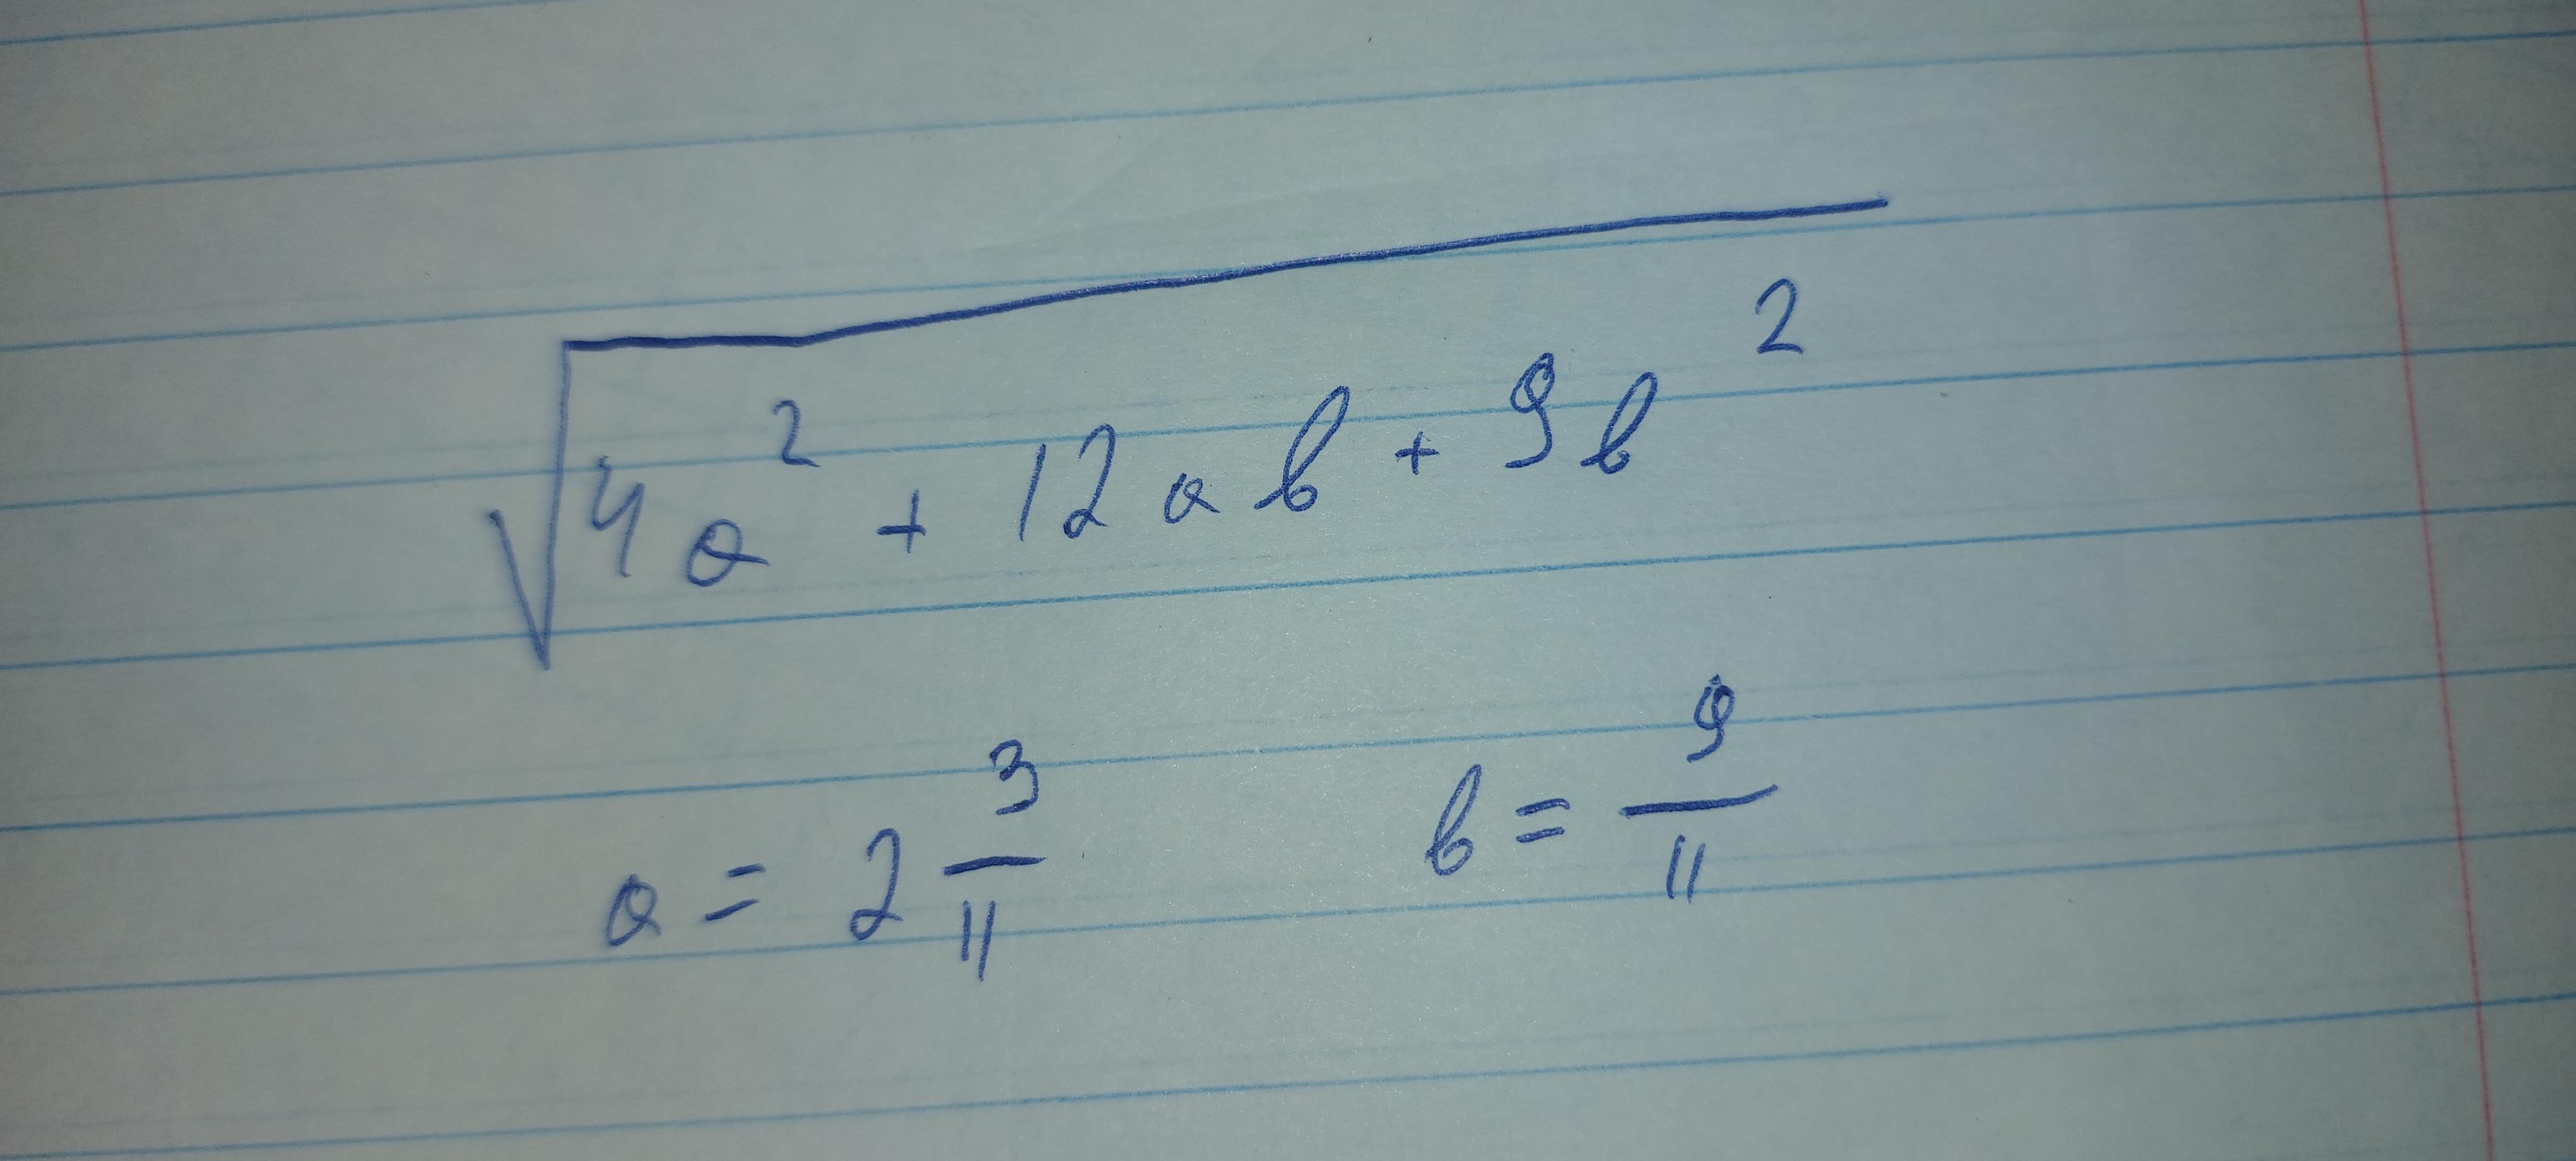 √(4a² + 12ab + 9b²)
a = 2 3/11 b = 9/11